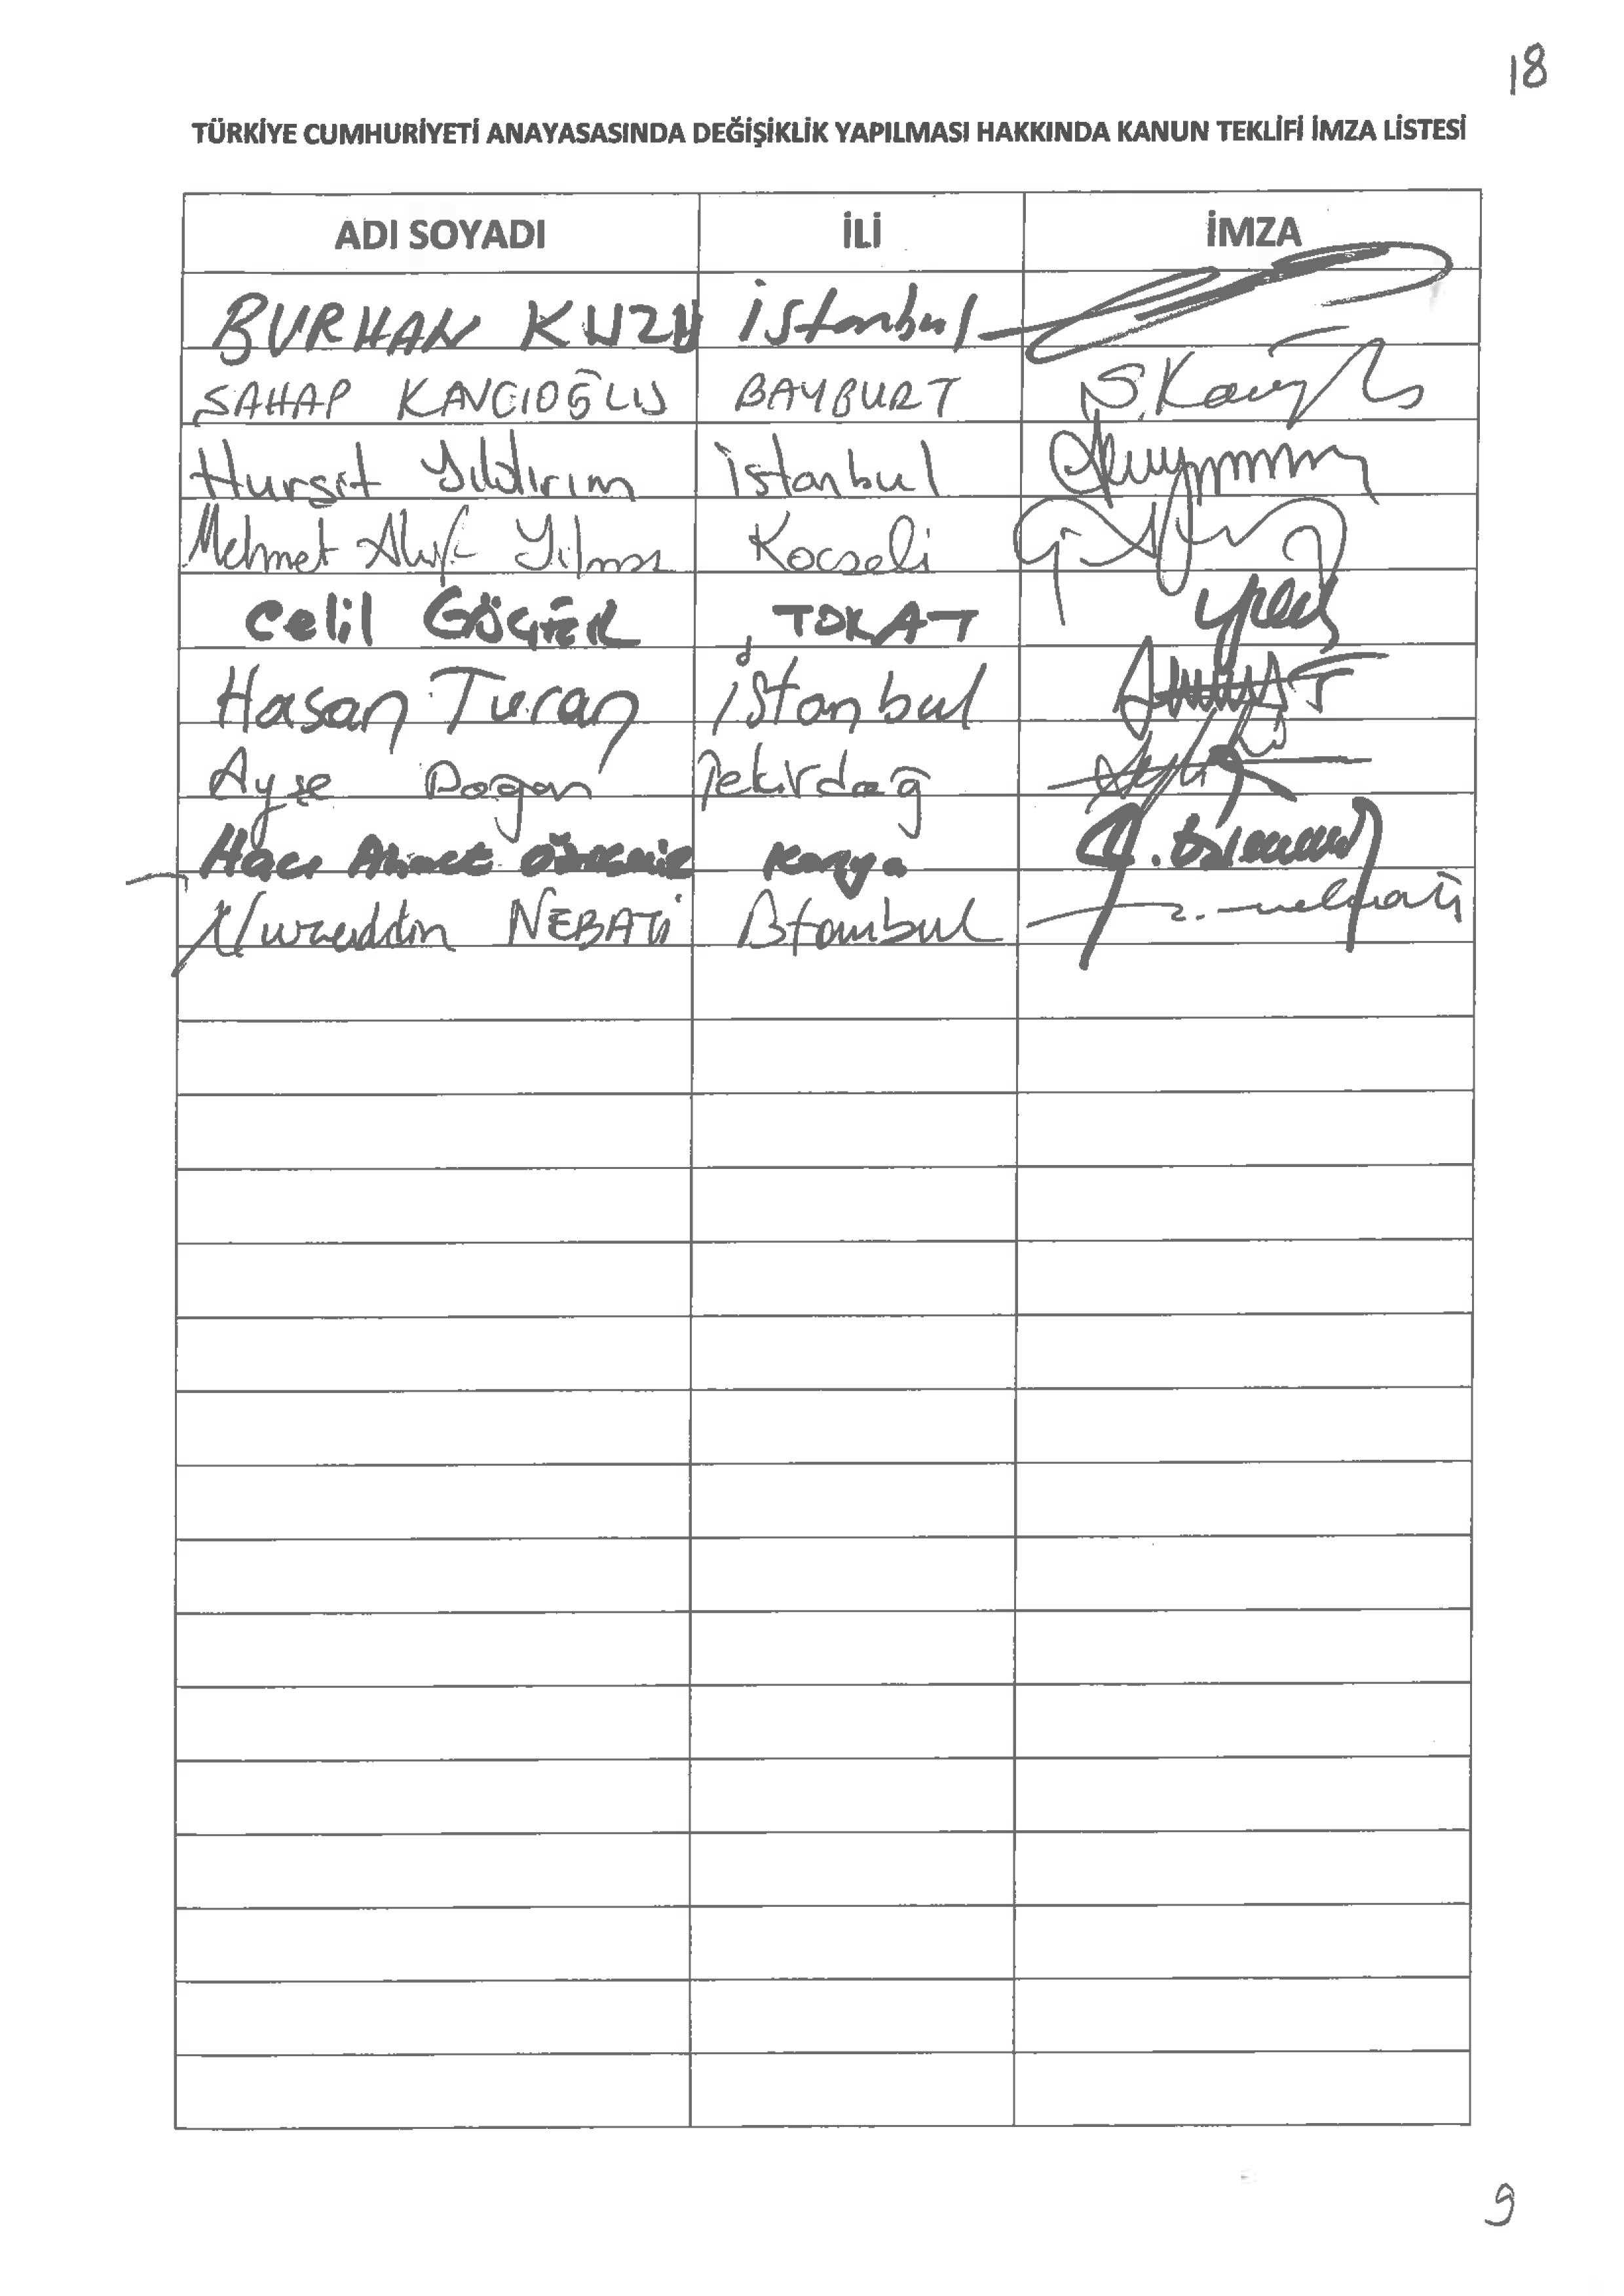 18
TÜRKİYE CUMHURİYETİ ANAYASASINDA DEĞİŞİKLİK YAPILMASI HAKKINDA KANUN TEKLİFİ İMZA LİSTESİ
ADI SOYADI İLİ İMZA
BURHAN KUZU İstanbul
ŞAHAP KAVCIOĞLU BAYBURT
Hurşit Yıldırım İstanbul
Mehmet Akif Yılmaz Kocaeli
Celil GÖÇER TOKAT
Hasan Turan İstanbul
Ayşe Doğan Tekirdağ
Hacı Ahmet ÖZDEMİR Konya
Nureddin NEBATİ İstanbul
9